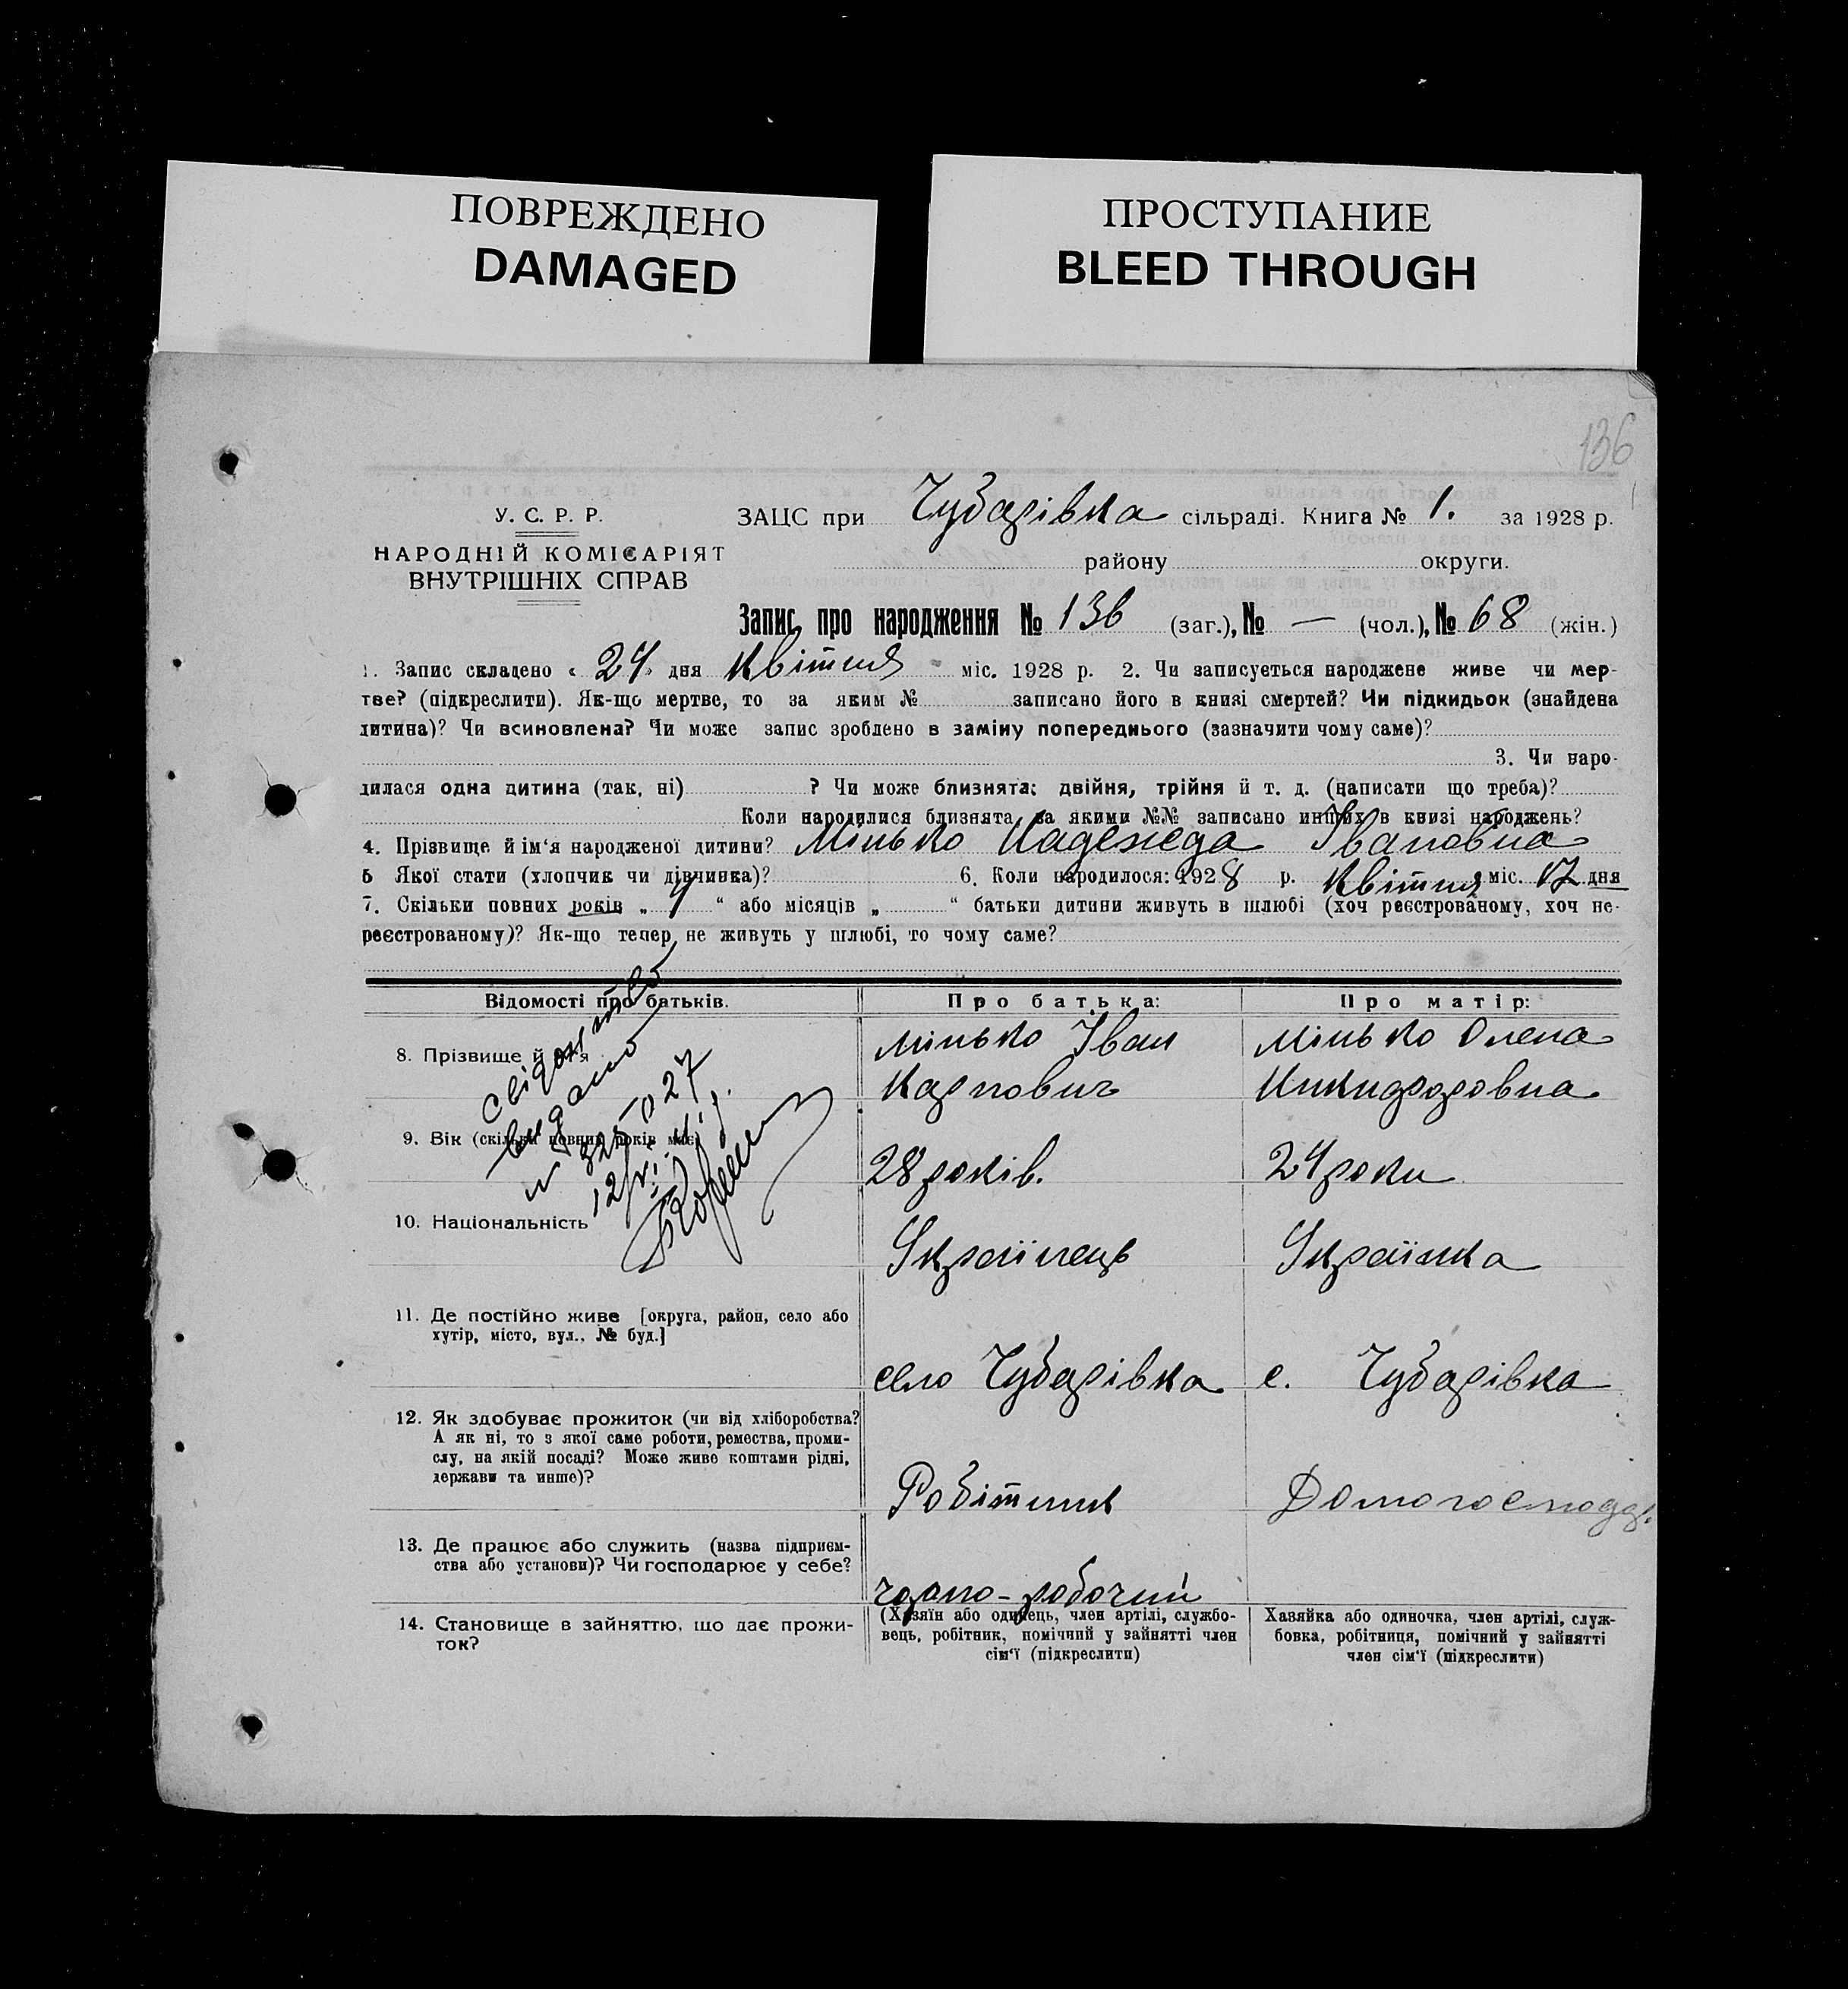 ПОВРЕЖДЕНО
DAMAGED
ПРОСТУПАНИЕ
BLEED THROUGH
136
У. С. Р. Р.
НАРОДНІЙ КОМІСАРІЯТ
ВНУТРІШНІХ СПРАВ
ЗАЦС при Чубарівка сільраді. Книга № 1. за 1928 р.
району округи.
Запис про народження № 136 (заг.), № — (чол.), № 68 (жін.)
1. Запис складено « 24 » дня Квітня міс. 1928 р. 2. Чи записується народжене живе чи мер-
тве? (підкреслити). Як-що мертве, то за яким № записано його в книзі смертей? Чи підкидьок (знайдена
дитина)? Чи всиновлена? Чи може запис зроблено в заміну попереднього (зазначити чому саме)?
3. Чи наро-
дилася одна дитина (так, ні) ? Чи може близнята: двійня, трійня й т. д. (написати що треба)?
Коли народилися близнята, за якими №№ записано инших в книзі народжень?
4. Прізвище й ім‘я народженої дитини? Мінько Надежеда Івановна
5 Якої стати (хлопчик чи дівчинка)? 6. Коли народилося: 1928 р. Квітня міс. 17 дня
7. Скільки повних років „ 4 “ або місяців „ “ батьки дитини живуть в шлюбі (хоч реєстрованому, хоч не-
реєстрованому)? Як-що тепер не живуть у шлюбі, то чому саме?
Відомості про батьків.
Про батька:
Про матір:
8. Прізвище й ім‘я
Мінько Іван
Карпович
Мінько Олена
Никифоровна
свідоцтво
видано
№ 325-027
9. Вік (скільки повних років має)
28 років.
24 роки
10. Національність
Українець
Українка
11. Де постійно живе [округа, район, село або
хутір, місто, вул., № буд.]
село Чубарівка
с. Чубарівка
12. Як здобуває прожиток (чи від хліборобства?
А як ні, то з якої саме роботи, ремества, проми-
слу, на якій посаді? Може живе коштами рідні,
держави та инше)?
Робітник
Домогосподар.
13. Де працює або служить (назва підприєм-
ства або установи)? Чи господарює у себе?
чорно-робочий
14. Становище в зайняттю, що дає прожи-
ток?
(Хазяїн або одинець, член артілі, службо-
вець, робітник, помічний у зайнятті член
сім‘ї (підкреслити)
Хазяйка або одиночка, член артілі, служ-
бовка, робітниця, помічний у зайнятті
член сім‘ї (підкреслити)